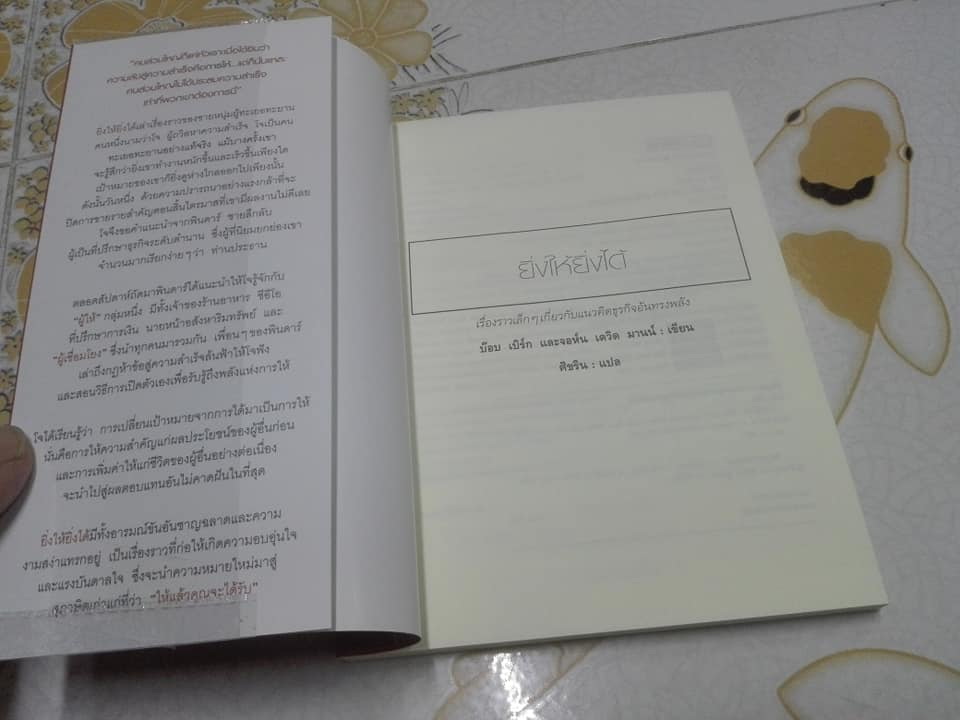 "คนส่วนใหญ่ก็แค่หัวเราะเมื่อได้ยินว่า
ความลับสู่ความสำเร็จคือการให้...แต่ก็นั่นแหละ
คนส่วนใหญ่ไม่ได้ประสบความสำเร็จ
เท่าที่พวกเขาต้องการนี่"
ยิ่งให้ยิ่งได้เล่าเรื่องราวของชายหนุ่มผู้ทะเยอทะยาน
คนหนึ่งนามว่าโจ ผู้ถวิลหาความสำเร็จ โจเป็นคน
ทะเยอทะยานอย่างแท้จริง แม้บางครั้งเขา
จะรู้สึกว่ายิ่งเขาทำงานหนักขึ้นและเร็วขึ้นเพียงใด
เป้าหมายของเขาก็ยิ่งดูห่างไกลออกไปเพียงนั้น
ดังนั้นวันหนึ่ง ด้วยความปรารถนาอย่างแรงกล้าที่จะ
ปิดการขายรายสำคัญตอนสิ้นไตรมาสที่เขามีผลงานไม่ดีเลย
โจจึงขอคำแนะนำจากพินดาร์ ชายลึกลับ
ผู้เป็นที่ปรึกษาธุรกิจระดับตำนาน ซึ่งผู้ที่นิยมยกย่องเขา
จำนวนมากเรียกง่ายๆ ว่า ท่านประธาน
ตลอดสัปดาห์ถัดมาพินดาร์ได้แนะนำให้โจรู้จักกับ
"ผู้ให้" กลุ่มหนึ่ง มีทั้งเจ้าของร้านอาหาร ซีอีโอ
ที่ปรึกษาการเงิน นายหน้าอสังหาริมทรัพย์ และ
"ผู้เชื่อมโยง" ซึ่งนำทุกคนมารวมกัน เพื่อนๆ ของพินดาร์
เล่าถึงกฎห้าข้อสู่ความสำเร็จล้นฟ้าให้โจฟัง
และสอนวิธีการเปิดตัวเองเพื่อรับรู้ถึงพลังแห่งการให้
โจได้เรียนรู้ว่า การเปลี่ยนเป้าหมายจากการได้มาเป็นการให้
นั่นคือการให้ความสำคัญแก่ผลประโยชน์ของผู้อื่นก่อน
และการเพิ่มค่าให้แก่ชีวิตของผู้อื่นอย่างต่อเนื่อง
จะนำไปสู่ผลตอบแทนอันไม่คาดฝันในที่สุด
ยิ่งให้ยิ่งได้มีทั้งอารมณ์ขันอันชาญฉลาดและความ
งามสง่าแทรกอยู่ เป็นเรื่องราวที่ก่อให้เกิดความอบอุ่นใจ
และแรงบันดาลใจ ซึ่งจะนำความหมายใหม่มาสู่
สุภาษิตเก่าแก่ที่ว่า "ให้แล้วคุณจะได้รับ"
ยิ่งให้ยิ่งได้
เรื่องราวเล็กๆ เกี่ยวกับแนวคิดธุรกิจอันทรงพลัง
บ๊อบ เบิร์ก และจอห์น เดวิด มานน์ : เขียน
ศิชริน : แปล